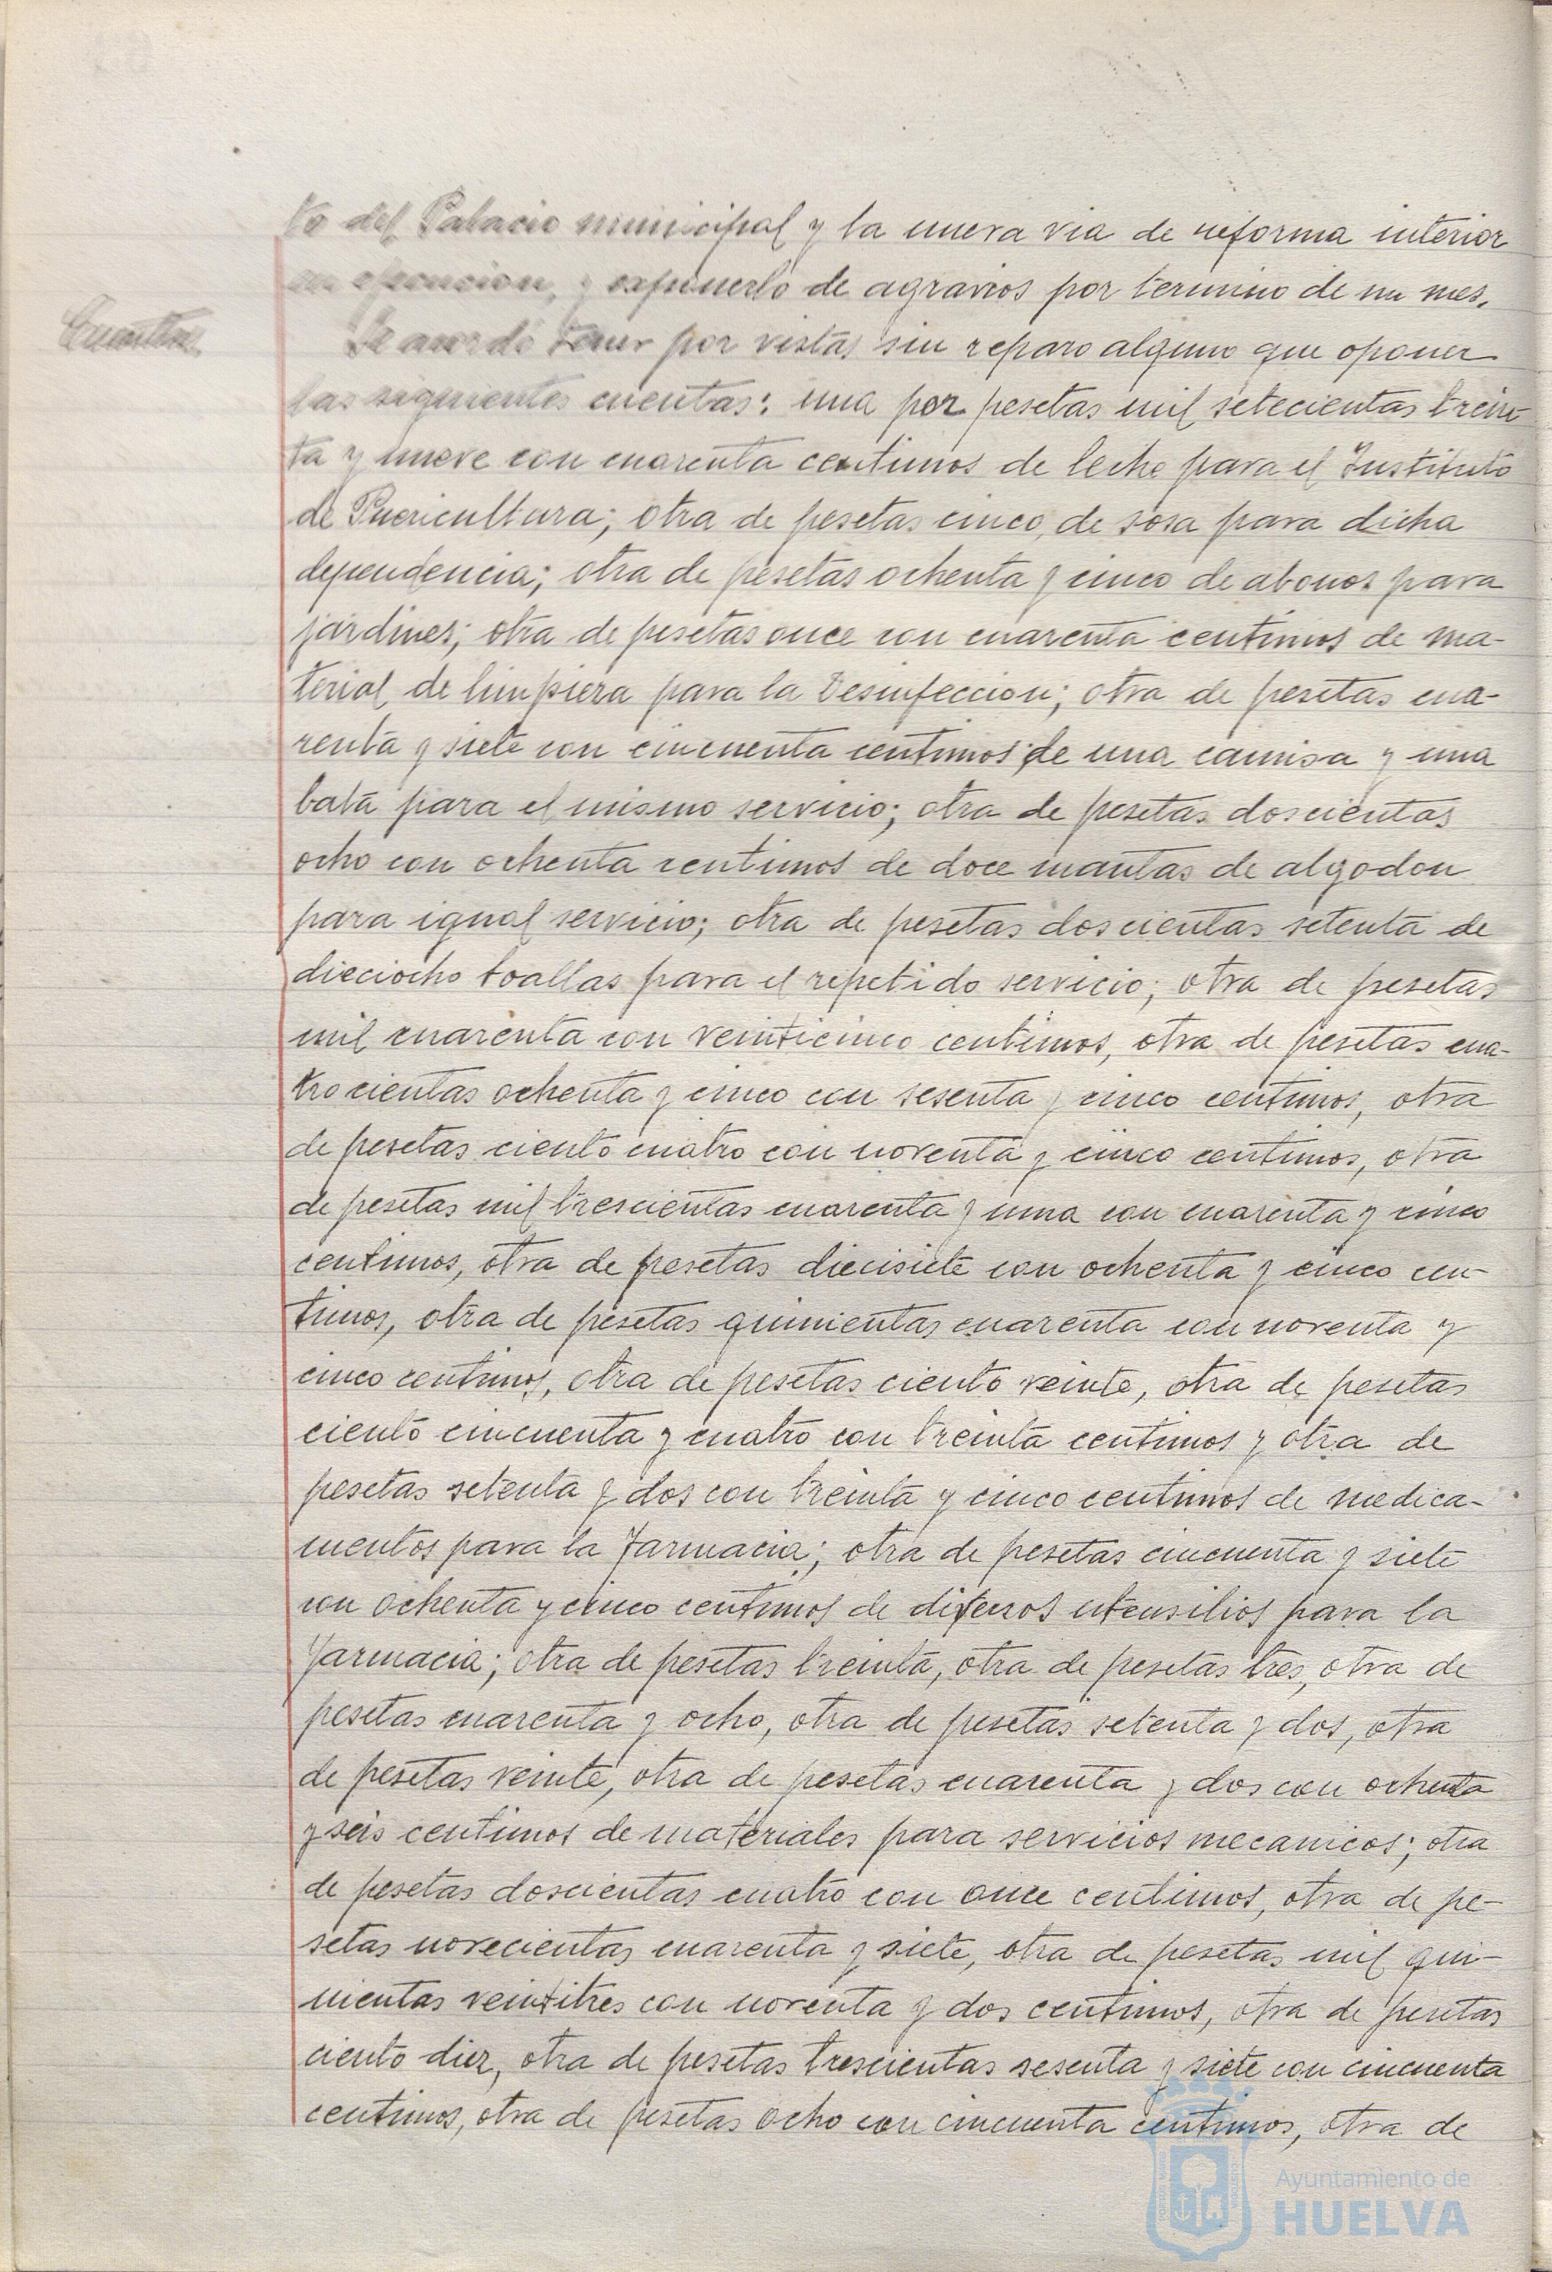 to del Palacio municipal y la nueva via de reforma interior
en y exponerlo de agravios por termino de un mes.
Cuentas
Se acordó tener por vistas sin reparo alguno que oponer
las siguientes cuentas: una por pesetas mil setecientas trein-
ta y nueve con cuarenta centimos de leche para el Instituto
de Puericultura; otra de pesetas cinco, de sosa para dicha
dependencia; otra de pesetas ochenta y cinco de abonos para
jardines; otra de pesetas once con cuarenta centimos de ma-
terial de limpieza para la Desinfeccion; otra de pesetas cua-
renta y siete con cincuenta centimos de una camisa y una
bata para el mismo servicio; otra de pesetas doscientas
ocho con ochenta centimos de doce mantas de algodon
para igual servicio; otra de pesetas doscientas setenta de
dieciocho toallas para el repetido servicio; otra de pesetas
mil cuarenta con veinticinco centimos, otra de pesetas cua-
trocientas ochenta y cinco con sesenta y cinco centimos, otra
de pesetas ciento cuatro con noventa y cinco centimos, otra
de pesetas mil trescientas cuarenta y una con cuarenta y cinco
centimos, otra de pesetas diecisiete con ochenta y cinco cen-
timos, otra de pesetas quinientas cuarenta con noventa y
cinco centimos, otra de pesetas ciento veinte, otra de pesetas
ciento cincuenta y cuatro con treinta centimos y otra de
pesetas setenta y dos con treinta y cinco centimos de medica-
mentos para la farmacia; otra de pesetas cincuenta y siete
con ochenta y cinco centimos de diversos utensilios para la
farmacia; otra de pesetas treinta, otra de pesetas tres, otra de
pesetas cuarenta y ocho, otra de pesetas setenta y dos, otra
de pesetas veinte, otra de pesetas cuarenta y dos con ochenta
y seis centimos de materiales para servicios mecanicos; otra
de pesetas doscientas cuatro con once centimos, otra de pe-
setas novecientas cuarenta y siete, otra de pesetas mil qui-
nientas veintitres con noventa y dos centimos, otra de pesetas
ciento diez, otra de pesetas trescientas sesenta y siete con cincuenta
centimos, otra de pesetas ocho con cincuenta centimos, otra de
Ayuntamiento de
HUELVA